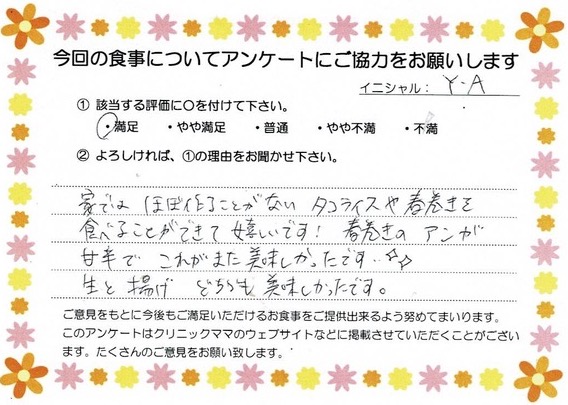 今回の食事についてアンケートにご協力をお願いします
イニシャル： Y-A
① 該当する評価に○を付けて下さい。
・満足 ・やや満足 ・普通 ・やや不満 ・不満
② よろしければ、①の理由をお聞かせ下さい。
家では ほぼ作ることがない タコライスや春巻きを
食べることができて 嬉しいです！ 春巻きの アンが
甘辛で これがまた 美味しかったです‥☆☆
生と 揚げ どちらも 美味しかったです。
ご意見をもとに今後もご満足いただけるお食事をご提供出来るよう努めてまいります。
このアンケートはクリニックママのウェブサイトなどに掲載させていただくことがござい
ます。たくさんのご意見をお願い致します。